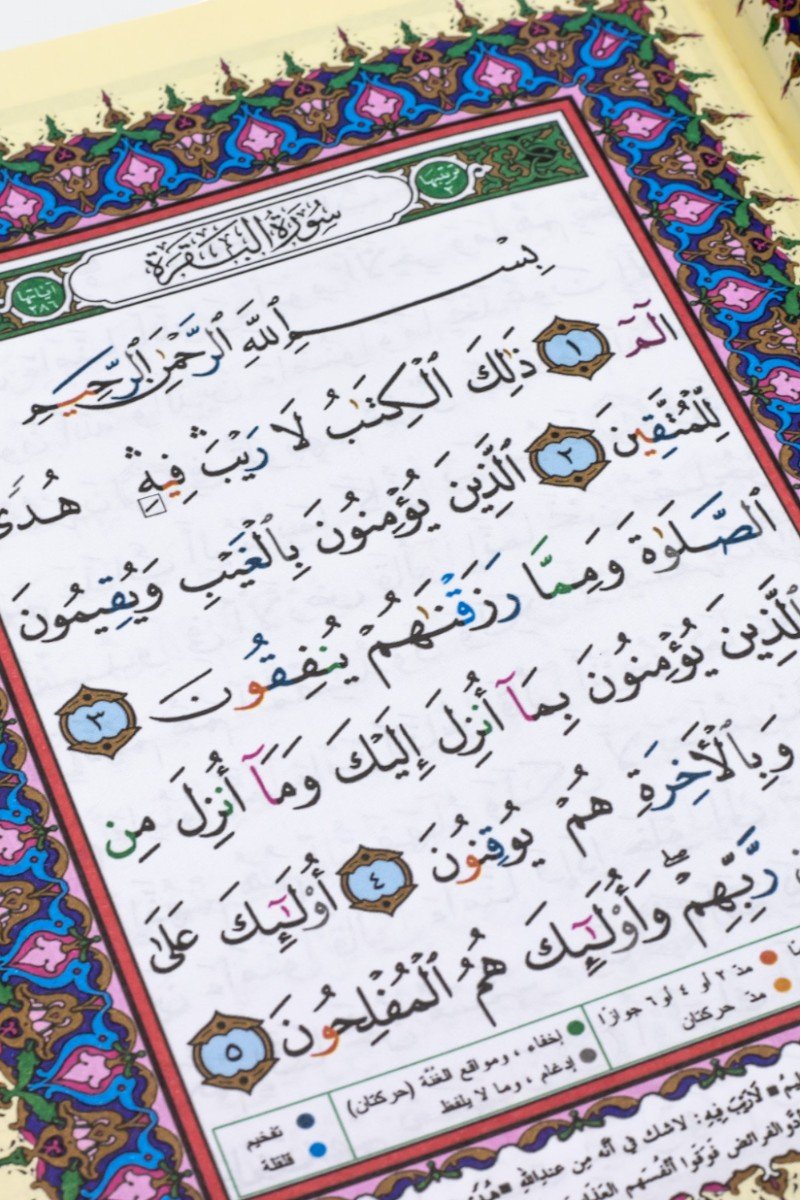 ترتيبها ٢
سُورَةُ البَقَرَة
آياتها ٢٨٦
بِسْمِ ٱللَّهِ ٱلرَّحْمَٰنِ ٱلرَّحِيمِ
الٓمٓ ١ ذَٰلِكَ ٱلْكِتَٰبُ لَا رَيْبَۛ فِيهِۛ هُدًى
لِّلْمُتَّقِينَ ٢ ٱلَّذِينَ يُؤْمِنُونَ بِٱلْغَيْبِ وَيُقِيمُونَ
ٱلصَّلَوٰةَ وَمِمَّا رَزَقْنَٰهُمْ يُنفِقُونَ ٣
ٱلَّذِينَ يُؤْمِنُونَ بِمَآ أُنزِلَ إِلَيْكَ وَمَآ أُنزِلَ مِن
وَبِٱلْأَخِرَةِ هُمْ يُوقِنُونَ ٤ أُوْلَٰٓئِكَ عَلَىٰ
رَّبِّهِمْۖ وَأُوْلَٰٓئِكَ هُمُ ٱلْمُفْلِحُونَ ٥
مدّ ٢ أو ٤ أو ٦ جوازًا
مدّ حركتان
إخفاء ، ومواقع الغنّة (حركتان)
إدغام ، وما لا يلفظ
تفخيم
قلقلة
لَا رَيْبَ فِيهِ : لا شك في أنّه مِن عندِ الله